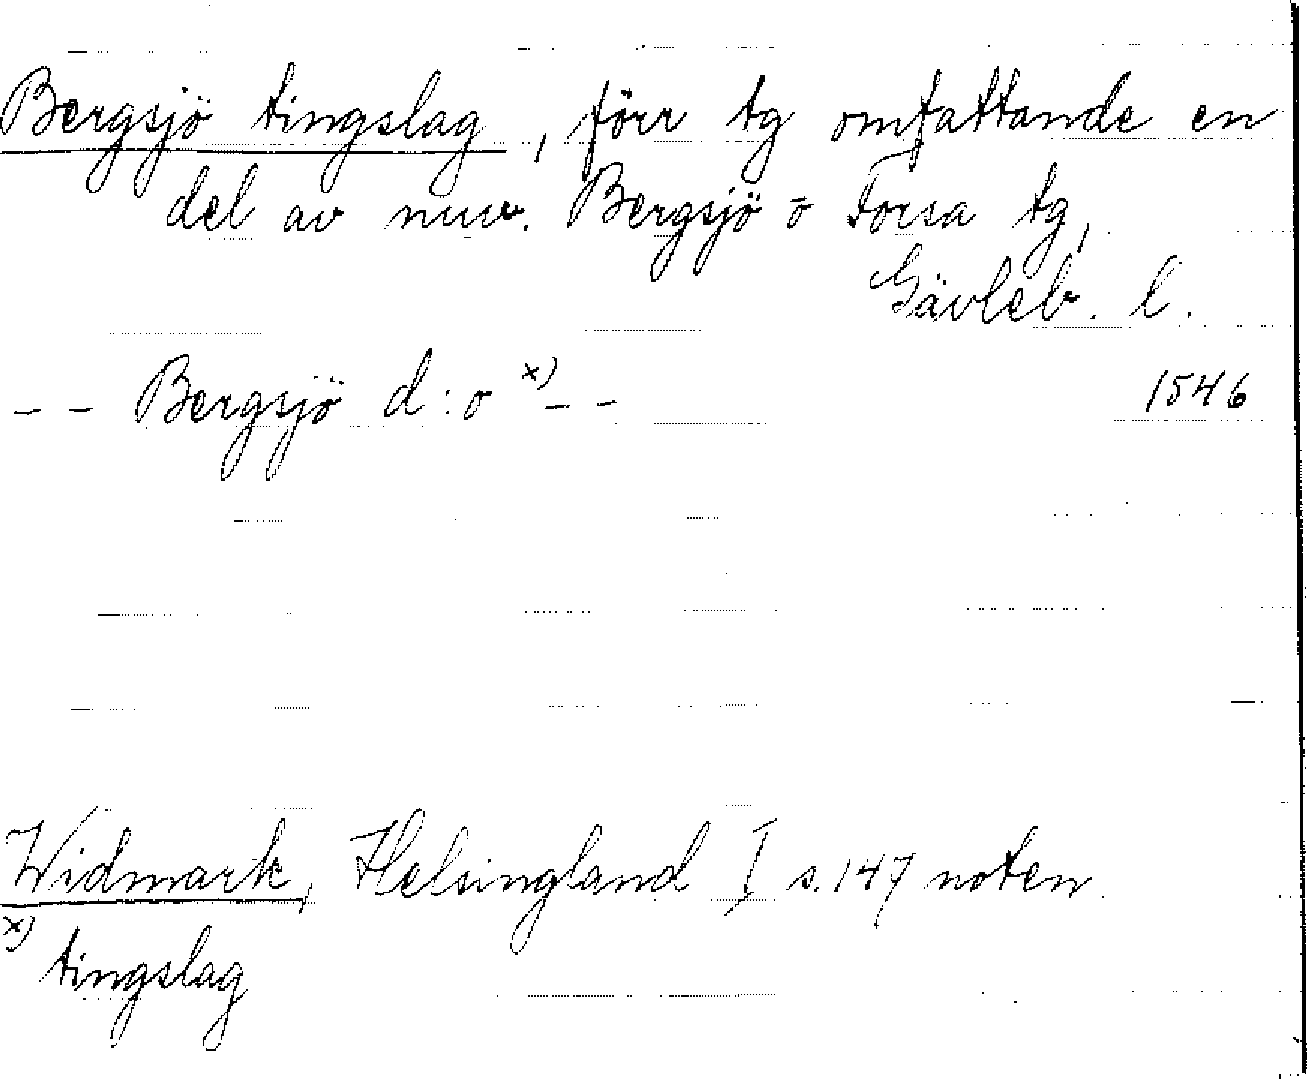 Bergsjö tingslag, förr tg omfattande en
del av nuv. Bergsjö o Forsa tg,
Gävleb. l.
-- Bergsjö d:o x) -- 1546
Widmark, Helsingland I s. 147 noten
x) tingslag